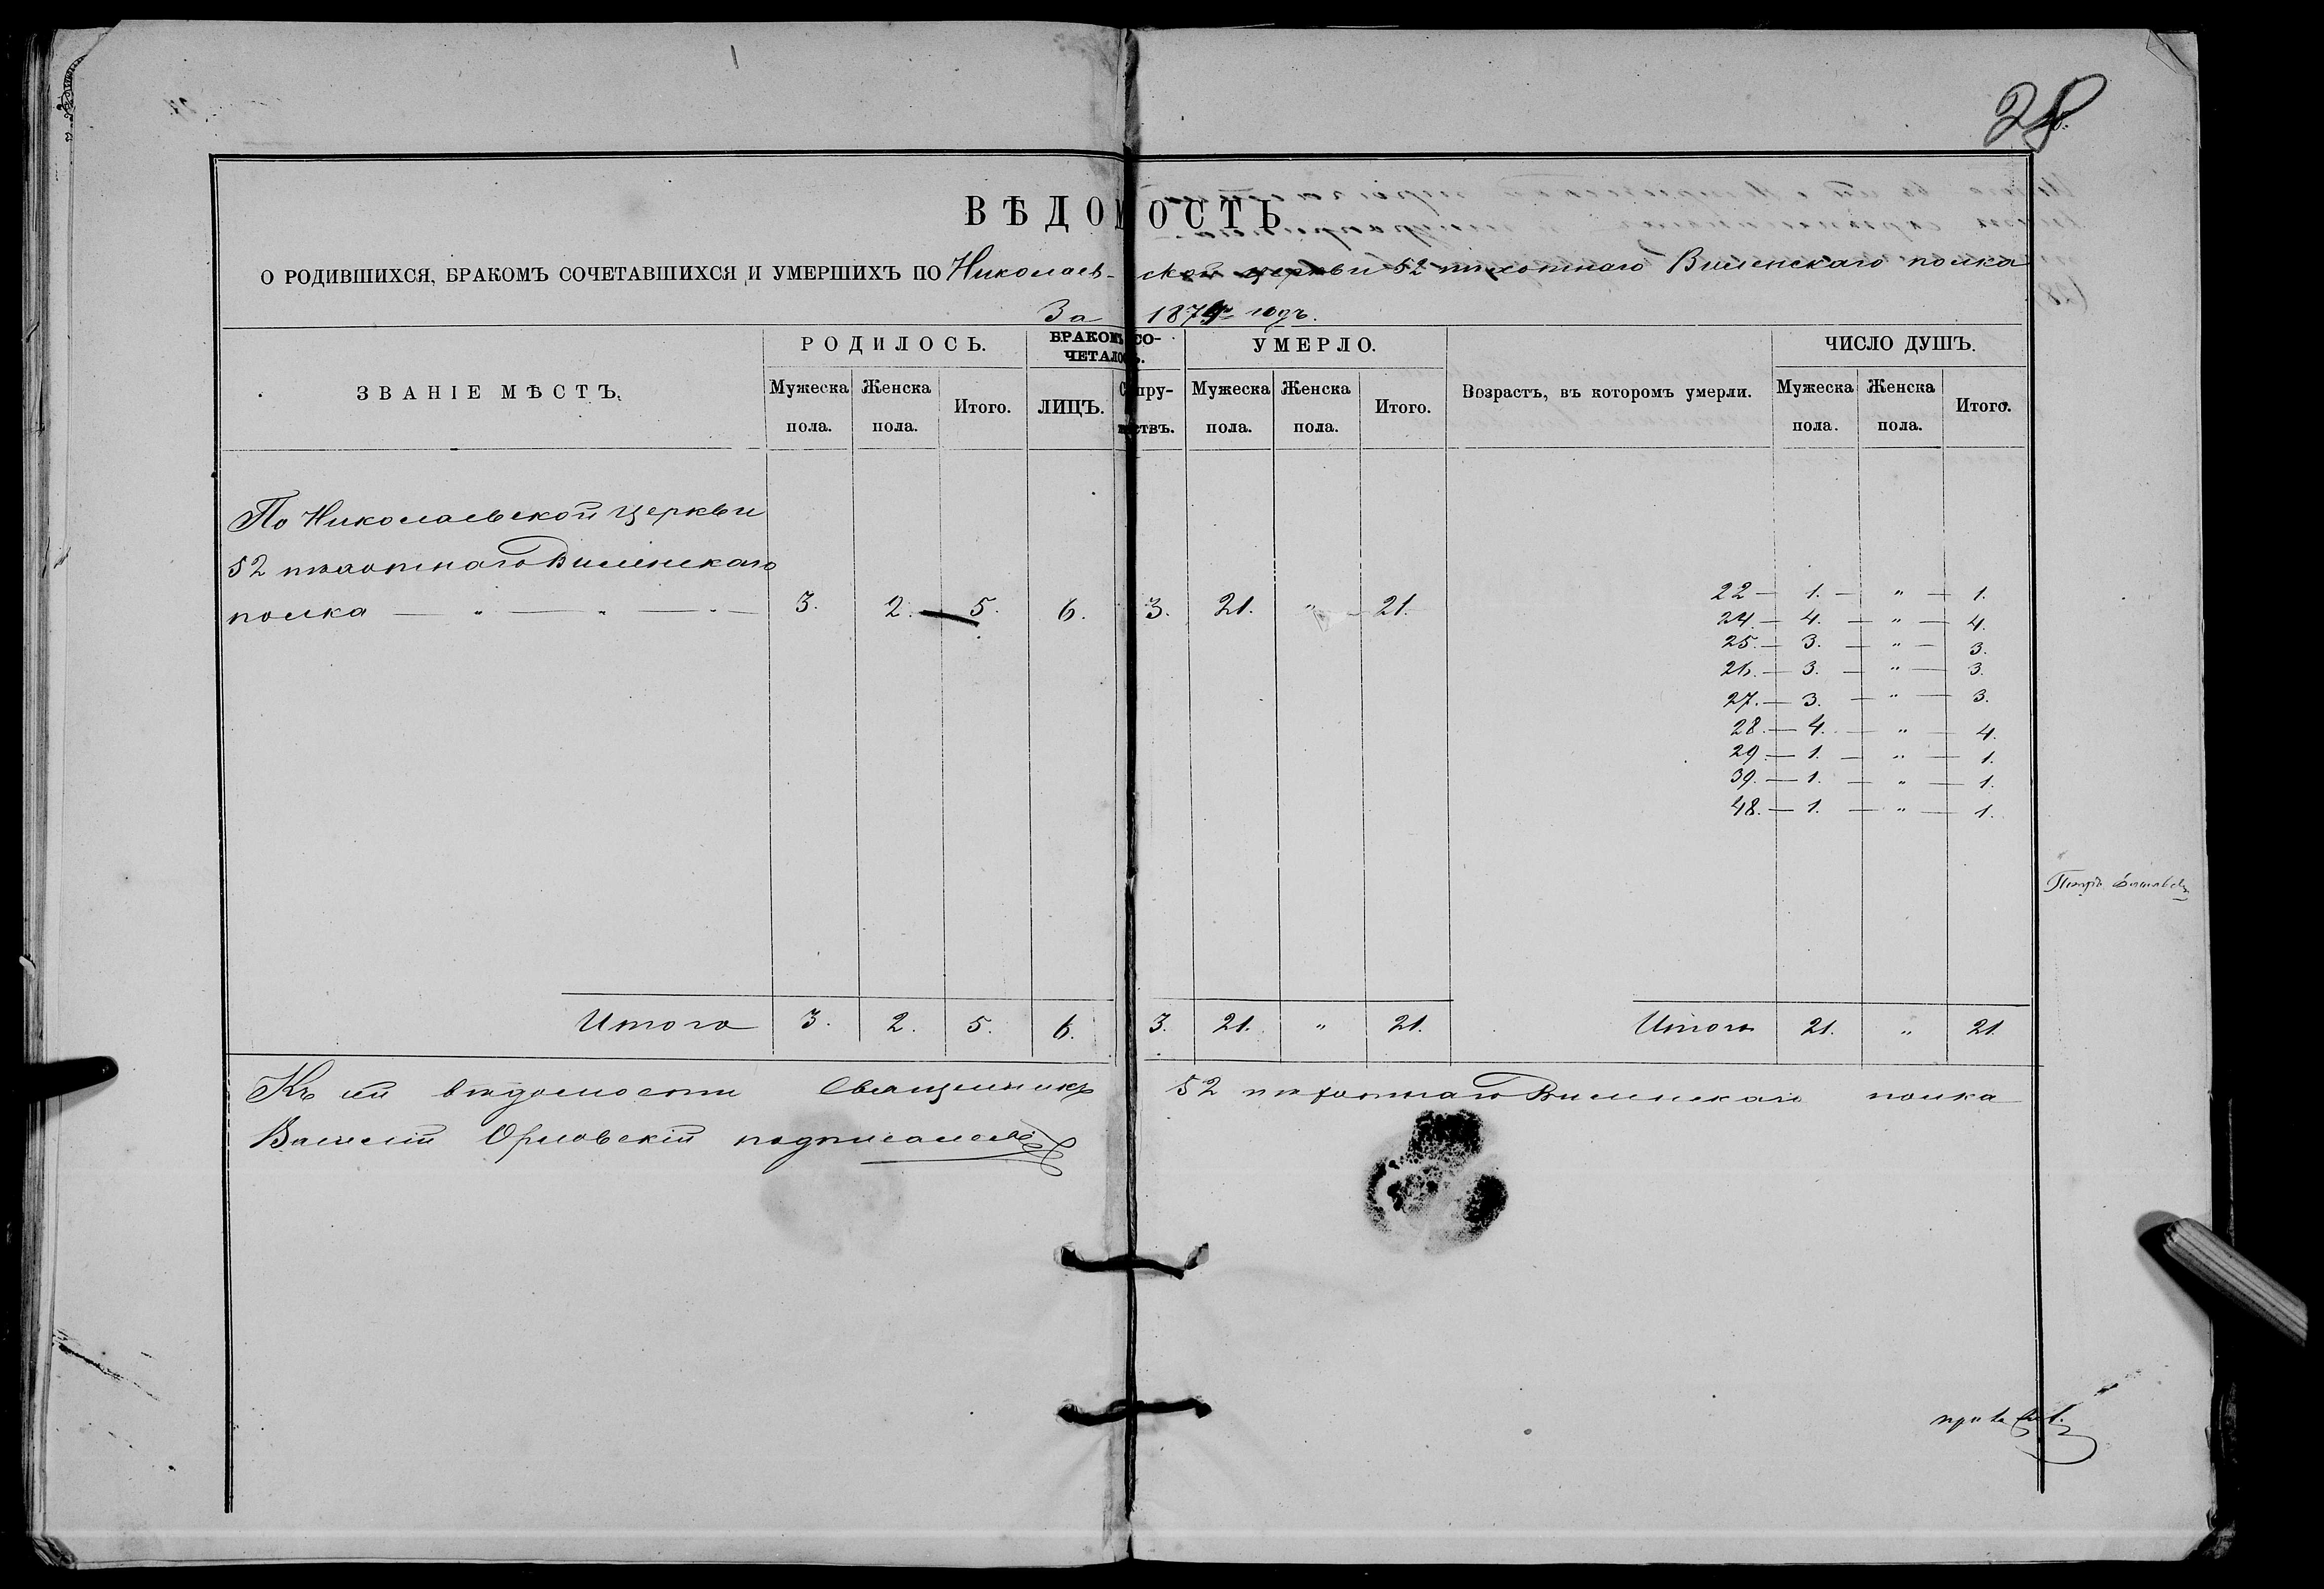 28
ВѢДОМОСТЬ
О РОДИВШИХСЯ, БРАКОМЪ СОЧЕТАВШИХСЯ И УМЕРШИХЪ ПО Николаевской церкви 52 пѣхотнаго Виленскаго полка
За 1874 годъ.
ЗВАНІЕ МѢСТЪ. РОДИЛОСЬ. БРАКОМЪ СОЧЕТАЛОСЬ. УМЕРЛО. Возрастъ, въ которомъ умерли. ЧИСЛО ДУШЪ.
Мужеска пола. Женска пола. Итого. ЛИЦЪ. Супружествъ. Мужеска пола. Женска пола. Итого. Мужеска пола. Женска пола. Итого.
По Николаевской церкви
52 пѣхотнаго Виленскаго
полка — „ — „ — „ — 3. 2. — 5. 6. 3. 21. „ — 21.
22 — 1. — „ — 1.
24. — 4. — „ — 4.
25. — 3. — „ — 3.
26. — 3. — „ — 3.
27. — 3. — „ — 3.
28. — 4. — „ — 4.
29. — 1. — „ — 1.
39. — 1. — „ — 1.
48. — 1. — „ — 1.
Итого 3. 2. 5. 6. 3. 21. „ 21. Итого 21. „ 21.
Къ сей вѣдомости Священникъ 52 пѣхотнаго Виленскаго полка
Василій Орловскій подписался